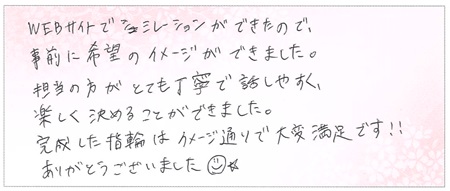 WEBサイトでシュミレーションができたので、
事前に希望のイメージができました。
担当の方がとても丁寧で話しやすく、
楽しく決めることができました。
完成した指輪はイメージ通りで大変満足です!!
ありがとうございました